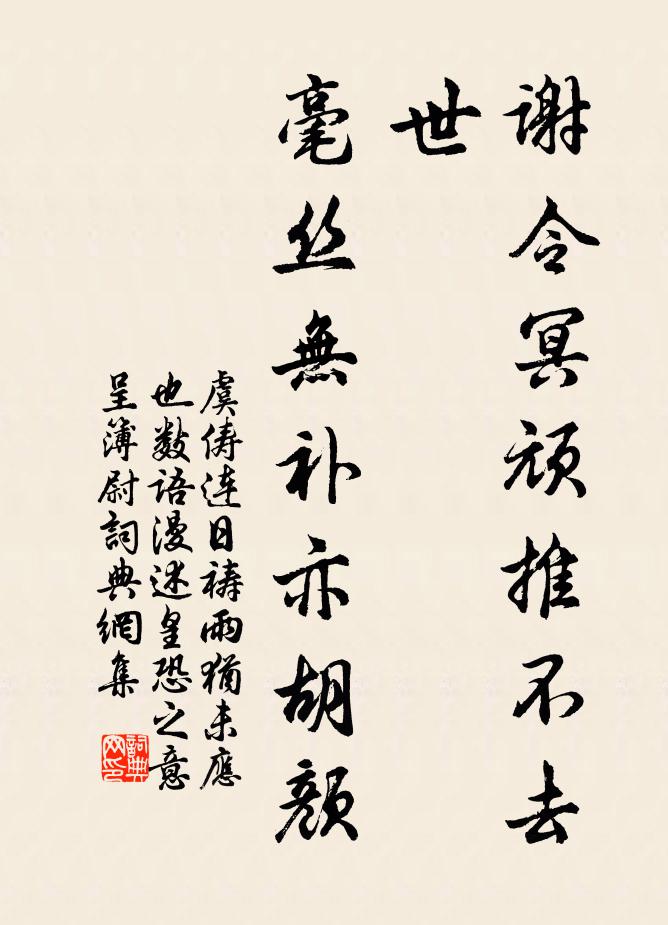 谢令冥顽推不去
世
毫丝無补亦胡颜
虞俦连日祷雨猶未應
也数语漫述皇恐之意
呈簿尉詞典網集
詞典
网印